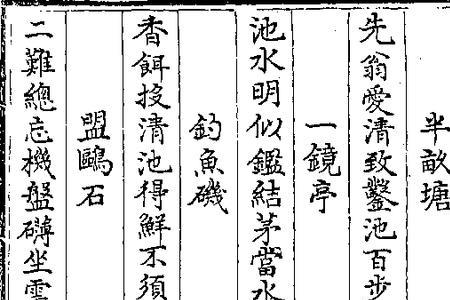 半畝塘
先翁愛清致鑿池百步
一鏡亭
池水明似鑑結茅當水
釣魚磯
香餌投清池得鮮不須
盟鷗石
二難總忘機盤礴坐雲